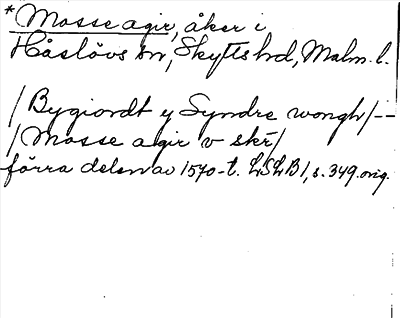 *Mosse agir, åker i
Håslövs sn, Skytts hd, Malm. l.
/Bygiordt y Syndre wongh/--
/Mosse agir v skr/
förra delen av 1570-t. LSLB1, s. 349. orig.